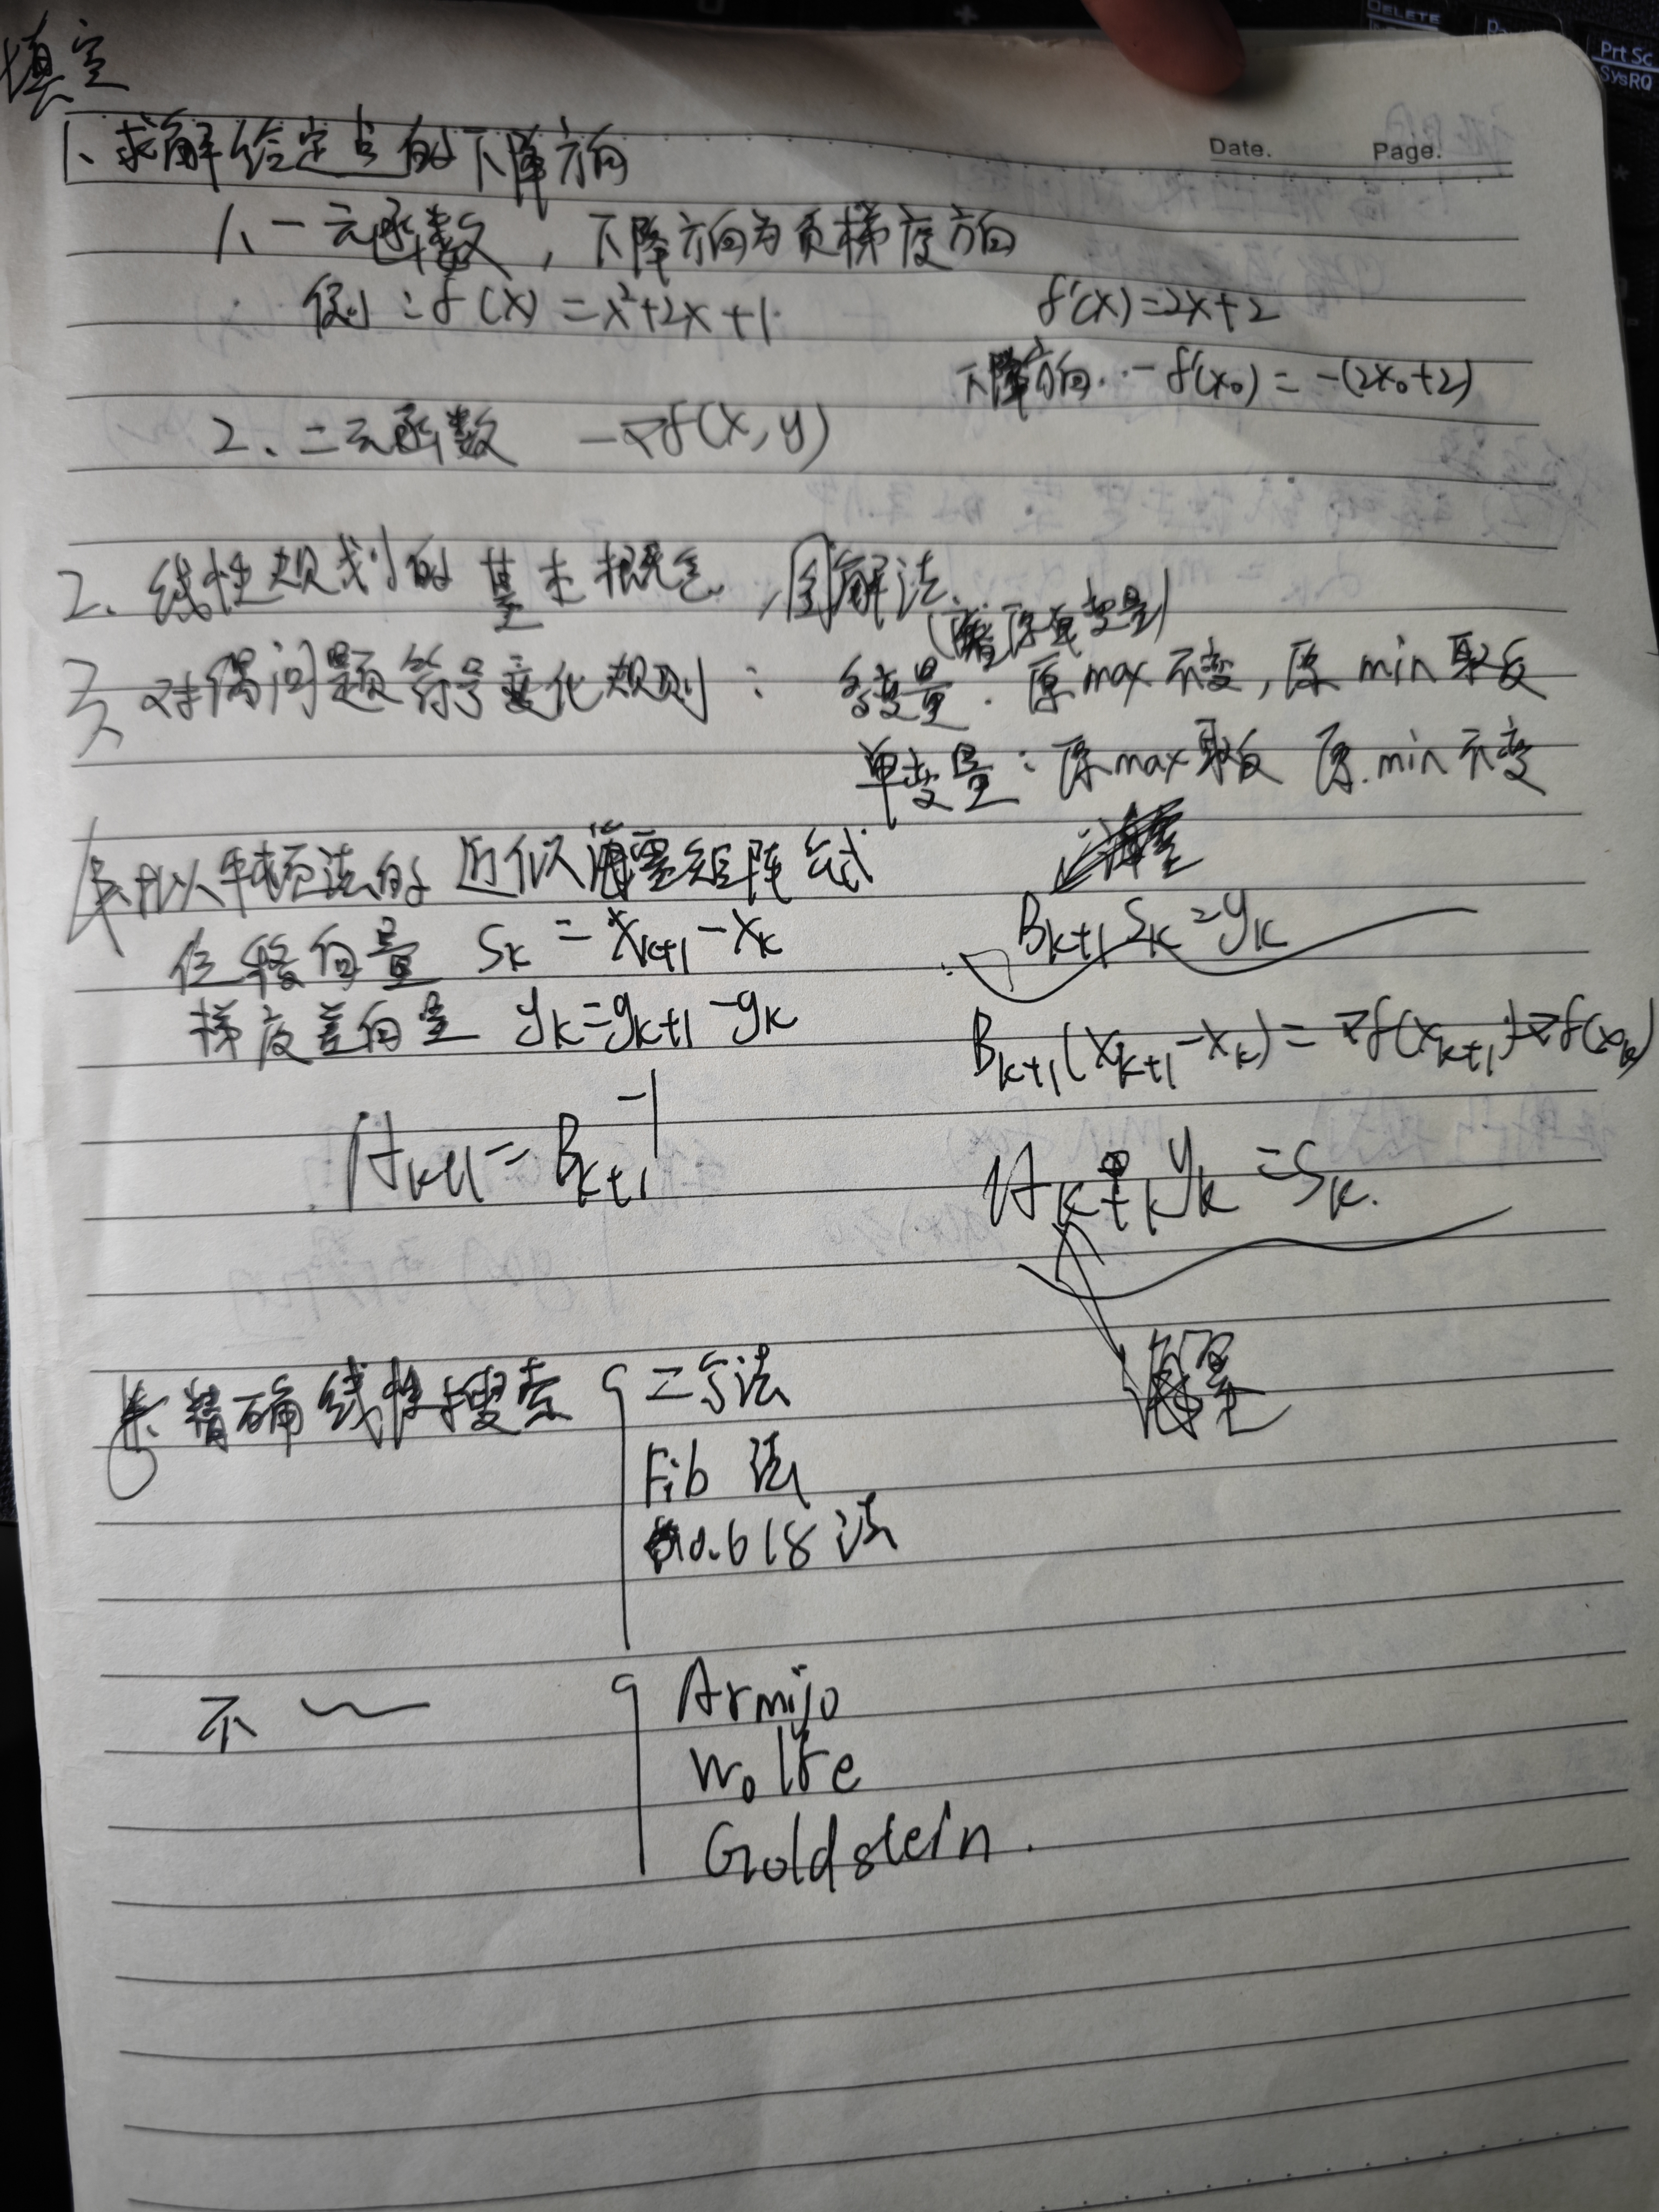 填空
Date. Page.
1、求解给定点的下降方向
1、一元函数，下降方向为负梯度方向
例：f(x)=x²+2x+1 f'(x)=2x+2
下降方向：-f'(x₀)=-(2x₀+2)
2、二元函数 -∇f(x,y)
2、线性规划的基本概念，图解法.
3、对偶问题符号变化规则：多变量：原max不变，原min取反
单变量：原max取反 原min不变
拟牛顿法的近似海塞矩阵公式
位移向量 Sₖ=Xₖ₊₁-Xₖ Bₖ₊₁Sₖ=yₖ
梯度差向量 yₖ=gₖ₊₁-gₖ Bₖ₊₁(Xₖ₊₁-Xₖ)=∇f(Xₖ₊₁)-∇f(Xₖ)
Hₖ₊₁=Bₖ₊₁⁻¹ Hₖ₊₁yₖ=Sₖ.
精确线性搜索 二分法
Fib 法
0.618法
不~ Armijo
Wolfe
Goldstein.
DELETE
Prt Sc
SysRQ